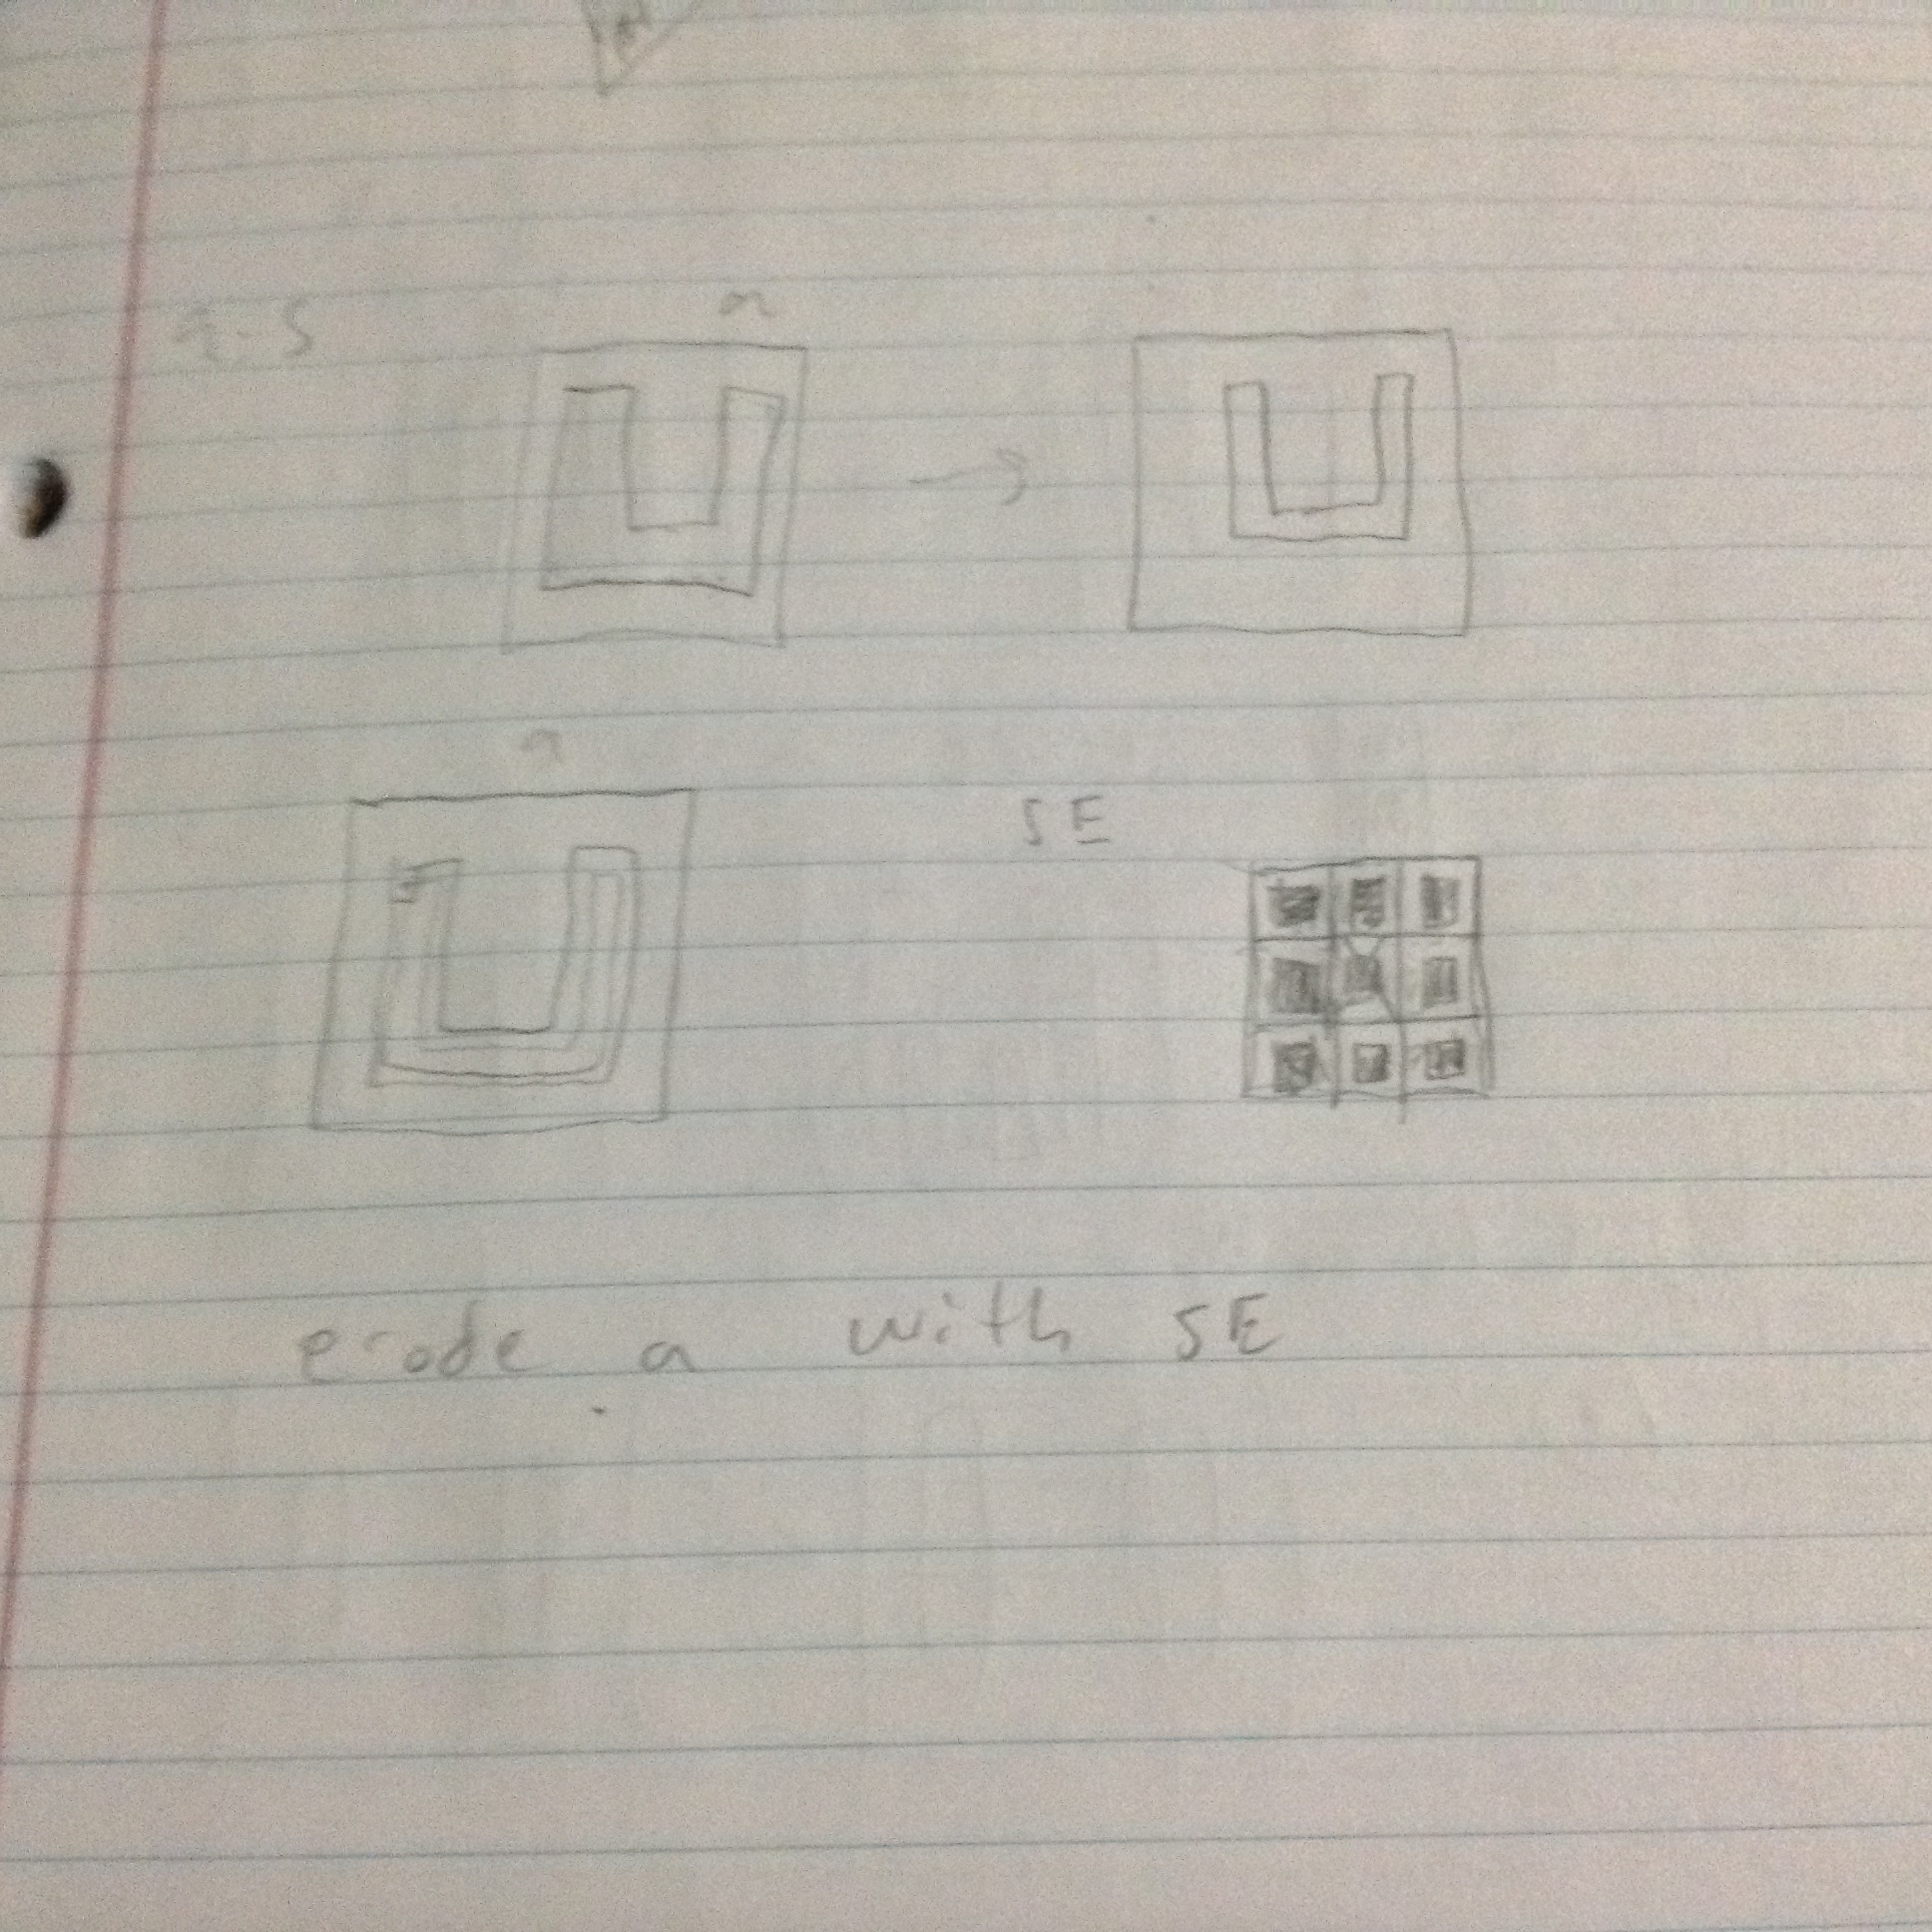 a
a
SE
erode a with SE